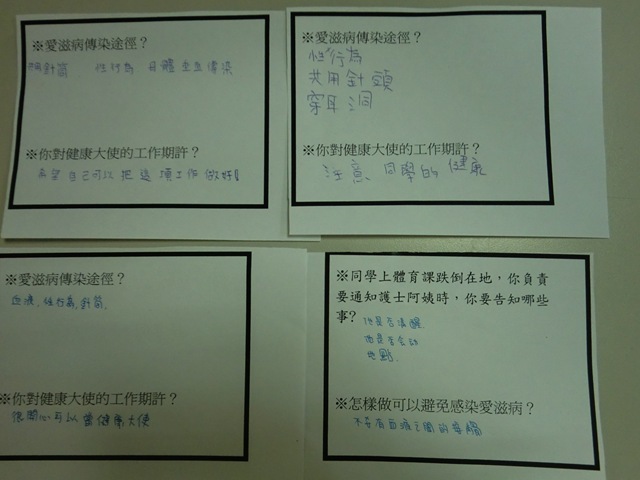 ※愛滋病傳染途徑？
用針筒 性行為 母體垂直傳染
※你對健康大使的工作期許？
希望自己可以把這項工作做好！
※愛滋病傳染途徑？
性行為
共用針頭
穿耳洞
※你對健康大使的工作期許？
注意同學的健康
※愛滋病傳染途徑？
血液，性行為，針筒，
※你對健康大使的工作期許？
很開心可以當健康大使
※同學上體育課跌倒在地，你負責
要通知護士阿姨時，你要告知哪些
事？
他是否清醒
他是否會動
地點，
※怎樣做可以避免感染愛滋病？
不要有血液之間的接觸